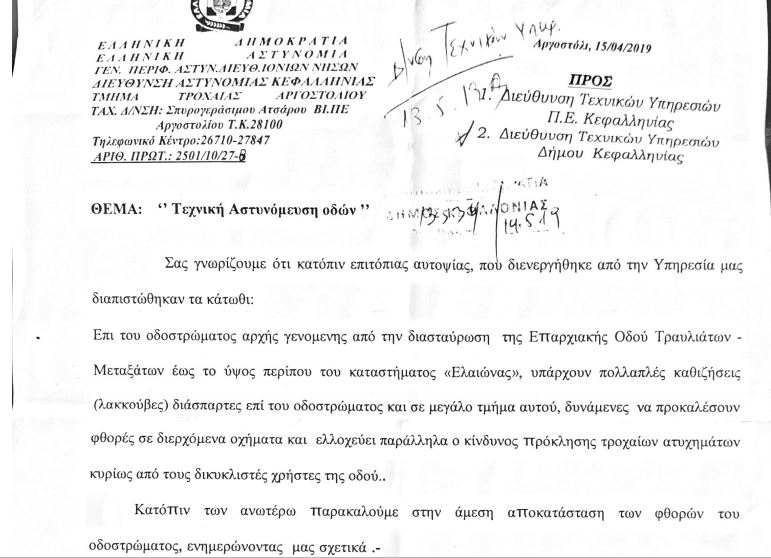 ΕΛΛΗΝΙΚΗ ΔΗΜΟΚΡΑΤΙΑ
ΕΛΛΗΝΙΚΗ ΑΣΤΥΝΟΜΙΑ
ΓΕΝ. ΠΕΡΙΦ. ΑΣΤΥΝ.ΔΙΕΥΘ.ΙΟΝΙΩΝ ΝΗΣΩΝ
ΔΙΕΥΘΥΝΣΗ ΑΣΤΥΝΟΜΙΑΣ ΚΕΦΑΛΛΗΝΙΑΣ
ΤΜΗΜΑ ΤΡΟΧΑΙΑΣ ΑΡΓΟΣΤΟΛΙΟΥ
ΤΑΧ. Δ/ΝΣΗ: Σπυρογεράσιμου Ατσάρου ΒΙ.ΠΕ
Αργοστολίου Τ.Κ.28100
Τηλεφωνικό Κέντρο:26710-27847
ΑΡΙΘ. ΠΡΩΤ.: 2501/10/27-
Δ/νση Τεχνικών Υπηρ.
13.5.19
Αργοστόλι, 15/04/2019
ΠΡΟΣ
1. Διεύθυνση Τεχνικών Υπηρεσιών
Π.Ε. Κεφαλληνίας
2. Διεύθυνση Τεχνικών Υπηρεσιών
Δήμου Κεφαλληνίας
14.5.19
ΘΕΜΑ: ‘’ Τεχνική Αστυνόμευση οδών ’’
Σας γνωρίζουμε ότι κατόπιν επιτόπιας αυτοψίας, που διενεργήθηκε από την Υπηρεσία μας
διαπιστώθηκαν τα κάτωθι:
Επι του οδοστρώματος αρχής γενομενης από την διασταύρωση της Επαρχιακής Οδού Τραυλιάτων -
Μεταξάτων έως το ύψος περίπου του καταστήματος «Ελαιώνας», υπάρχουν πολλαπλές καθιζήσεις
(λακκούβες) διάσπαρτες επί του οδοστρώματος και σε μεγάλο τμήμα αυτού, δυνάμενες να προκαλέσουν
φθορές σε διερχόμενα οχήματα και ελλοχεύει παράλληλα ο κίνδυνος πρόκλησης τροχαίων ατυχημάτων
κυρίως από τους δικυκλιστές χρήστες της οδού..
Κατόπιν των ανωτέρω παρακαλούμε στην άμεση αποκατάσταση των φθορών του
οδοστρώματος, ενημερώνοντας μας σχετικά .-